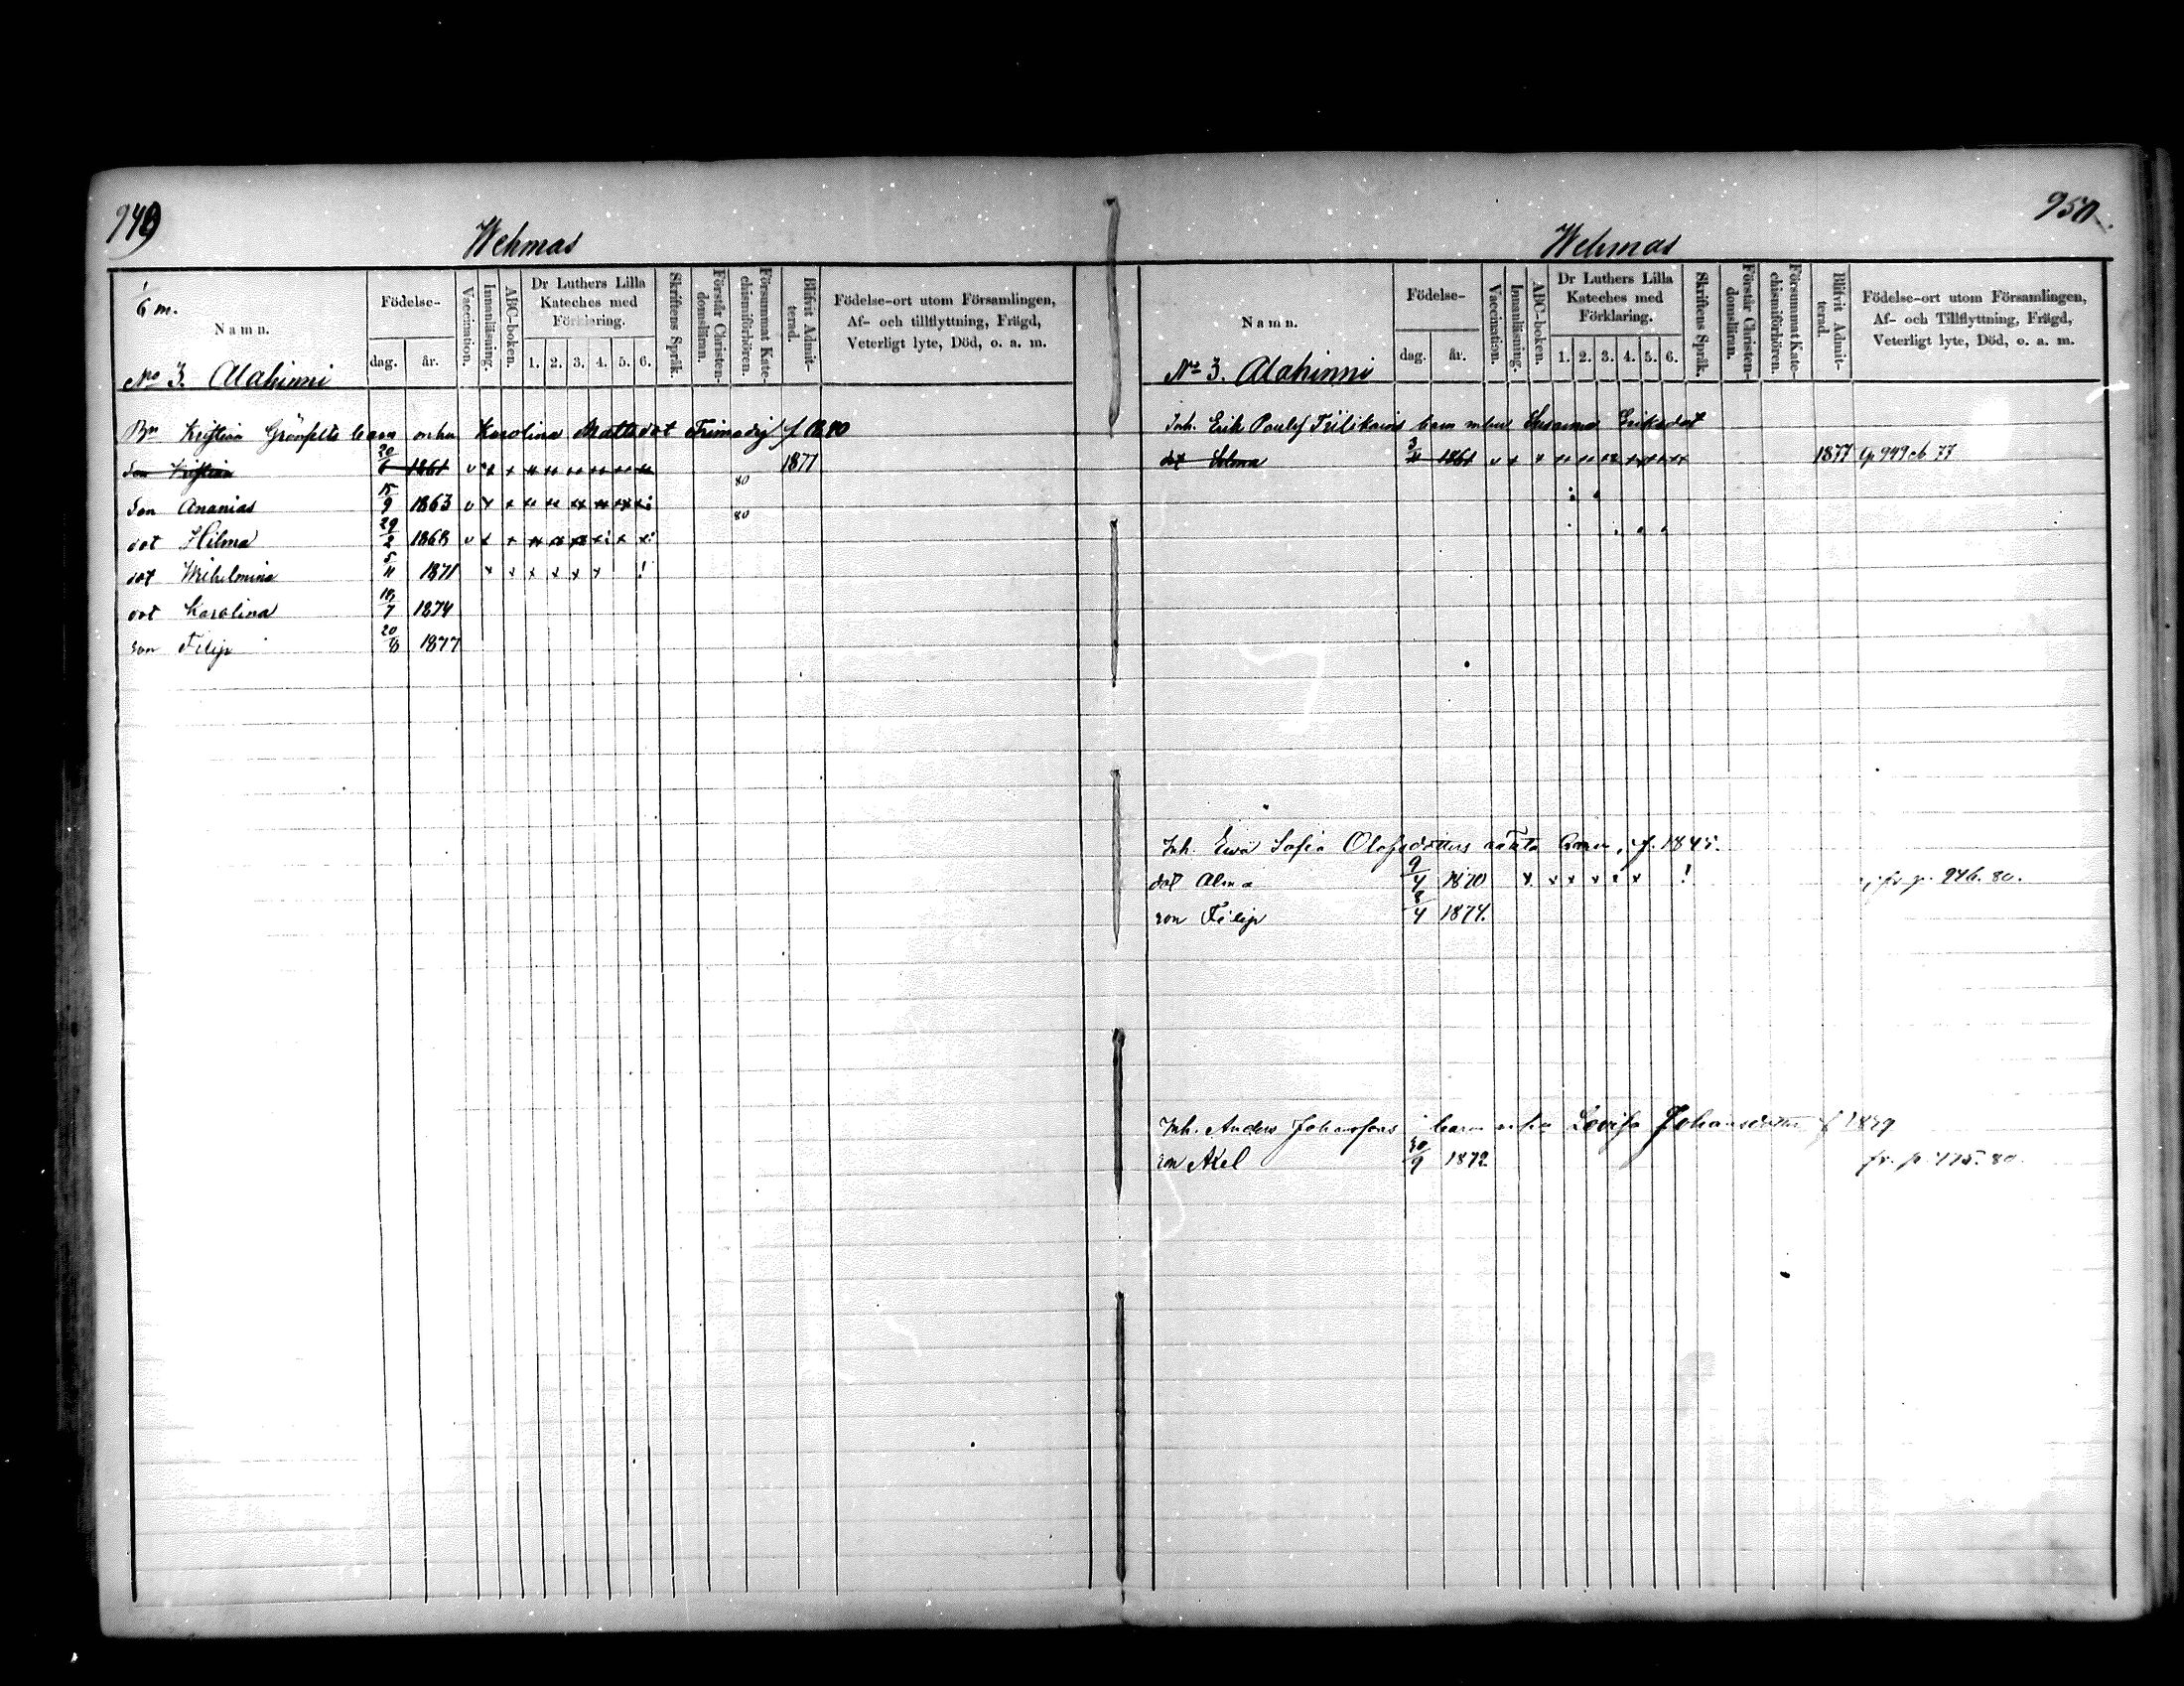 949
Wehmas
1/6 m.
Namn.
Födelse-
dag. år.
Vaccination.
Innanläsning.
ABC-boken.
Dr Luthers Lilla Kateches med Förklaring.
1. 2. 3. 4. 5. 6.
Skriftens Språk.
Förstår Christendomsläran.
Försummat Katechismiförhören.
Blifvit Admitterad.
Födelse-ort utom Församlingen,
Af- och tillflyttning, Frägd,
Veterligt lyte, Död, o. a. m.
No 3. Alahinni
Bn Kristian Grönfelts barn m hu Karolina Mattsdot
son Kristian 20/6 1861 v x x x x x x x x 1877
son Ananias 15/9 1863 v x x x x x x x x: 80
dot Hilma 29/2 1868 v x x x x x x: x x: 80
dot Wilhelmina 5/11 1871 x x x x x x !
dot Karolina 18/7 1874
son Filip 20/8 1877
950
Wehmas
Namn.
Födelse-
dag. år.
Vaccination.
Innanläsning.
ABC-boken.
Dr Luthers Lilla Kateches med Förklaring.
1. 2. 3. 4. 5. 6.
Skriftens Språk.
Förstår Christendomsläran.
Försummat Katechismiförhören.
Blifvit Admitterad.
Födelse-ort utom Församlingen,
Af- och Tillflyttning, Frägd,
Veterligt lyte, Död, o. a. m.
No 3. Alahinni
Inh. Erik barn m hu Susanna Eriksdot
dot Selma 3/11 1861 v x x x x x x x x 1877 949 77
Inh. Ewa Sofia Olofsdotters oäkta barn, f. 1845.
dot Alma 9/4 1870 x x x x x x ! fr. p. 946. 80.
son Filip 8/4 1874.
Inh. Anders Johanssons barn m hu Lovisa Johansdotter f 1849
son Axel 30/9 1872 fr. p. 775. 80.